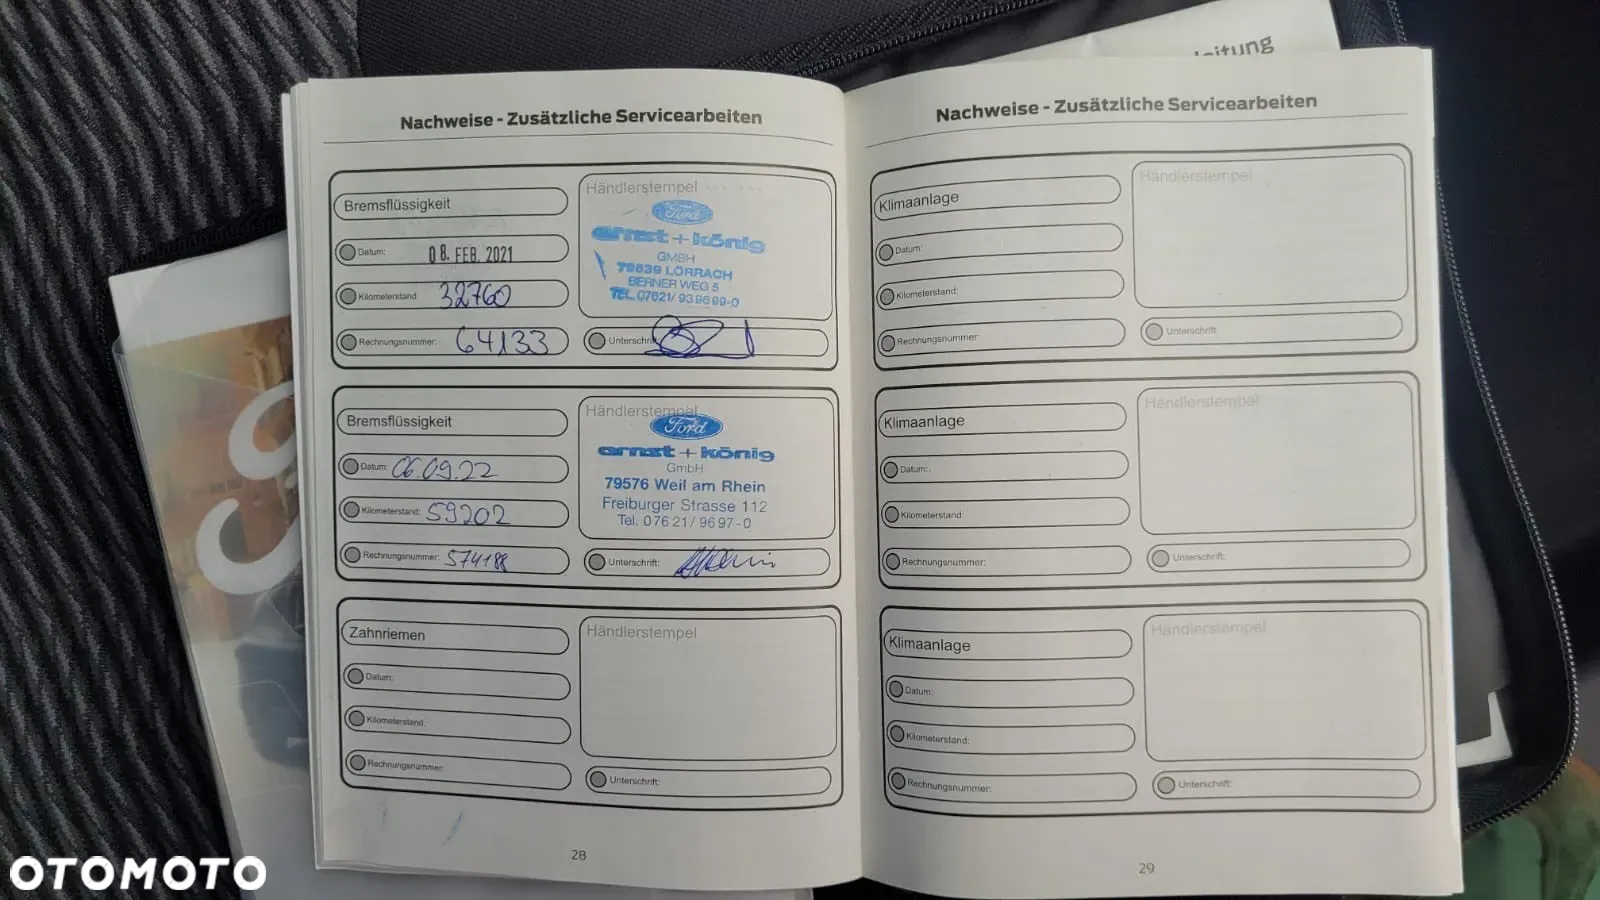 leitung
Nachweise - Zusätzliche Servicearbeiten
Bremsflüssigkeit
Datum: 08. FEB. 2021
Kilometerstand: 32760
Rechnungsnummer: 64133
Händlerstempel
Ford
ernst + könig
GMBH
79539 LÖRRACH
BERNER WEG 5
TEL. 07621/939699-0
Unterschrift
Bremsflüssigkeit
Datum: 06.09.22
Kilometerstand: 59202
Rechnungsnummer: 574188
Händlerstempel
Ford
ernst + könig
GmbH
79576 Weil am Rhein
Freiburger Strasse 112
Tel. 0 76 21 / 96 97-0
Unterschrift:
Zahnriemen
Datum:
Kilometerstand:
Rechnungsnummer:
Händlerstempel
Unterschrift:
28
Nachweise - Zusätzliche Servicearbeiten
Klimaanlage
Datum:
Kilometerstand:
Rechnungsnummer:
Händlerstempel
Unterschrift:
Klimaanlage
Datum:
Kilometerstand:
Rechnungsnummer:
Händlerstempel
Unterschrift:
Klimaanlage
Datum:
Kilometerstand:
Rechnungsnummer:
Händlerstempel
Unterschrift:
29
OTOMOTO